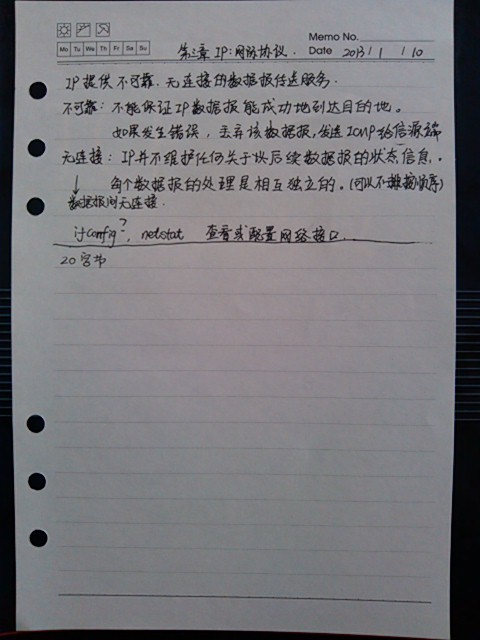 Memo No.
Mo Tu We Th Fr Sa Su
第三章 IP:网际协议. Date 2013 / 1 / 10
IP提供不可靠.无连接的数据报传送服务.
不可靠:不能保证IP数据报能成功地到达目的地。
如果发生错误,丢弃该数据报,发送ICMP给信源端
无连接:IP并不维护任何关于以后续数据报的状态信息.
每个数据报的处理是相互独立的.(可以不按顺序)
数据报间无连接.
ifconfig?, netstat 查看或配置网络接口...
20字节